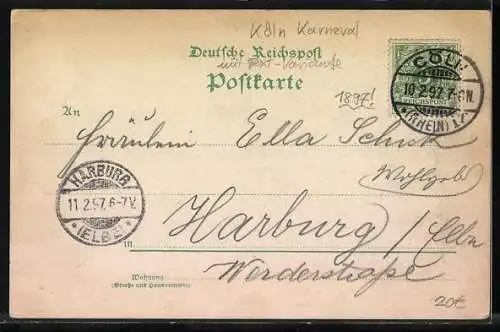 Köln Karneval
Deutsche Reichspost
mit Text-Variante
Postkarte
1897!
CÖLN
10.2.97.7-8N.
(RHEIN)
REICHSPOST
An
Fräulein Ella
Wohlgeb.
HARBURG
11.2.97.6-7V.
(ELBE)
in
Harburg / Elbe
Werderstraße
Wohnung
(Straße und Hausnummer)
20€